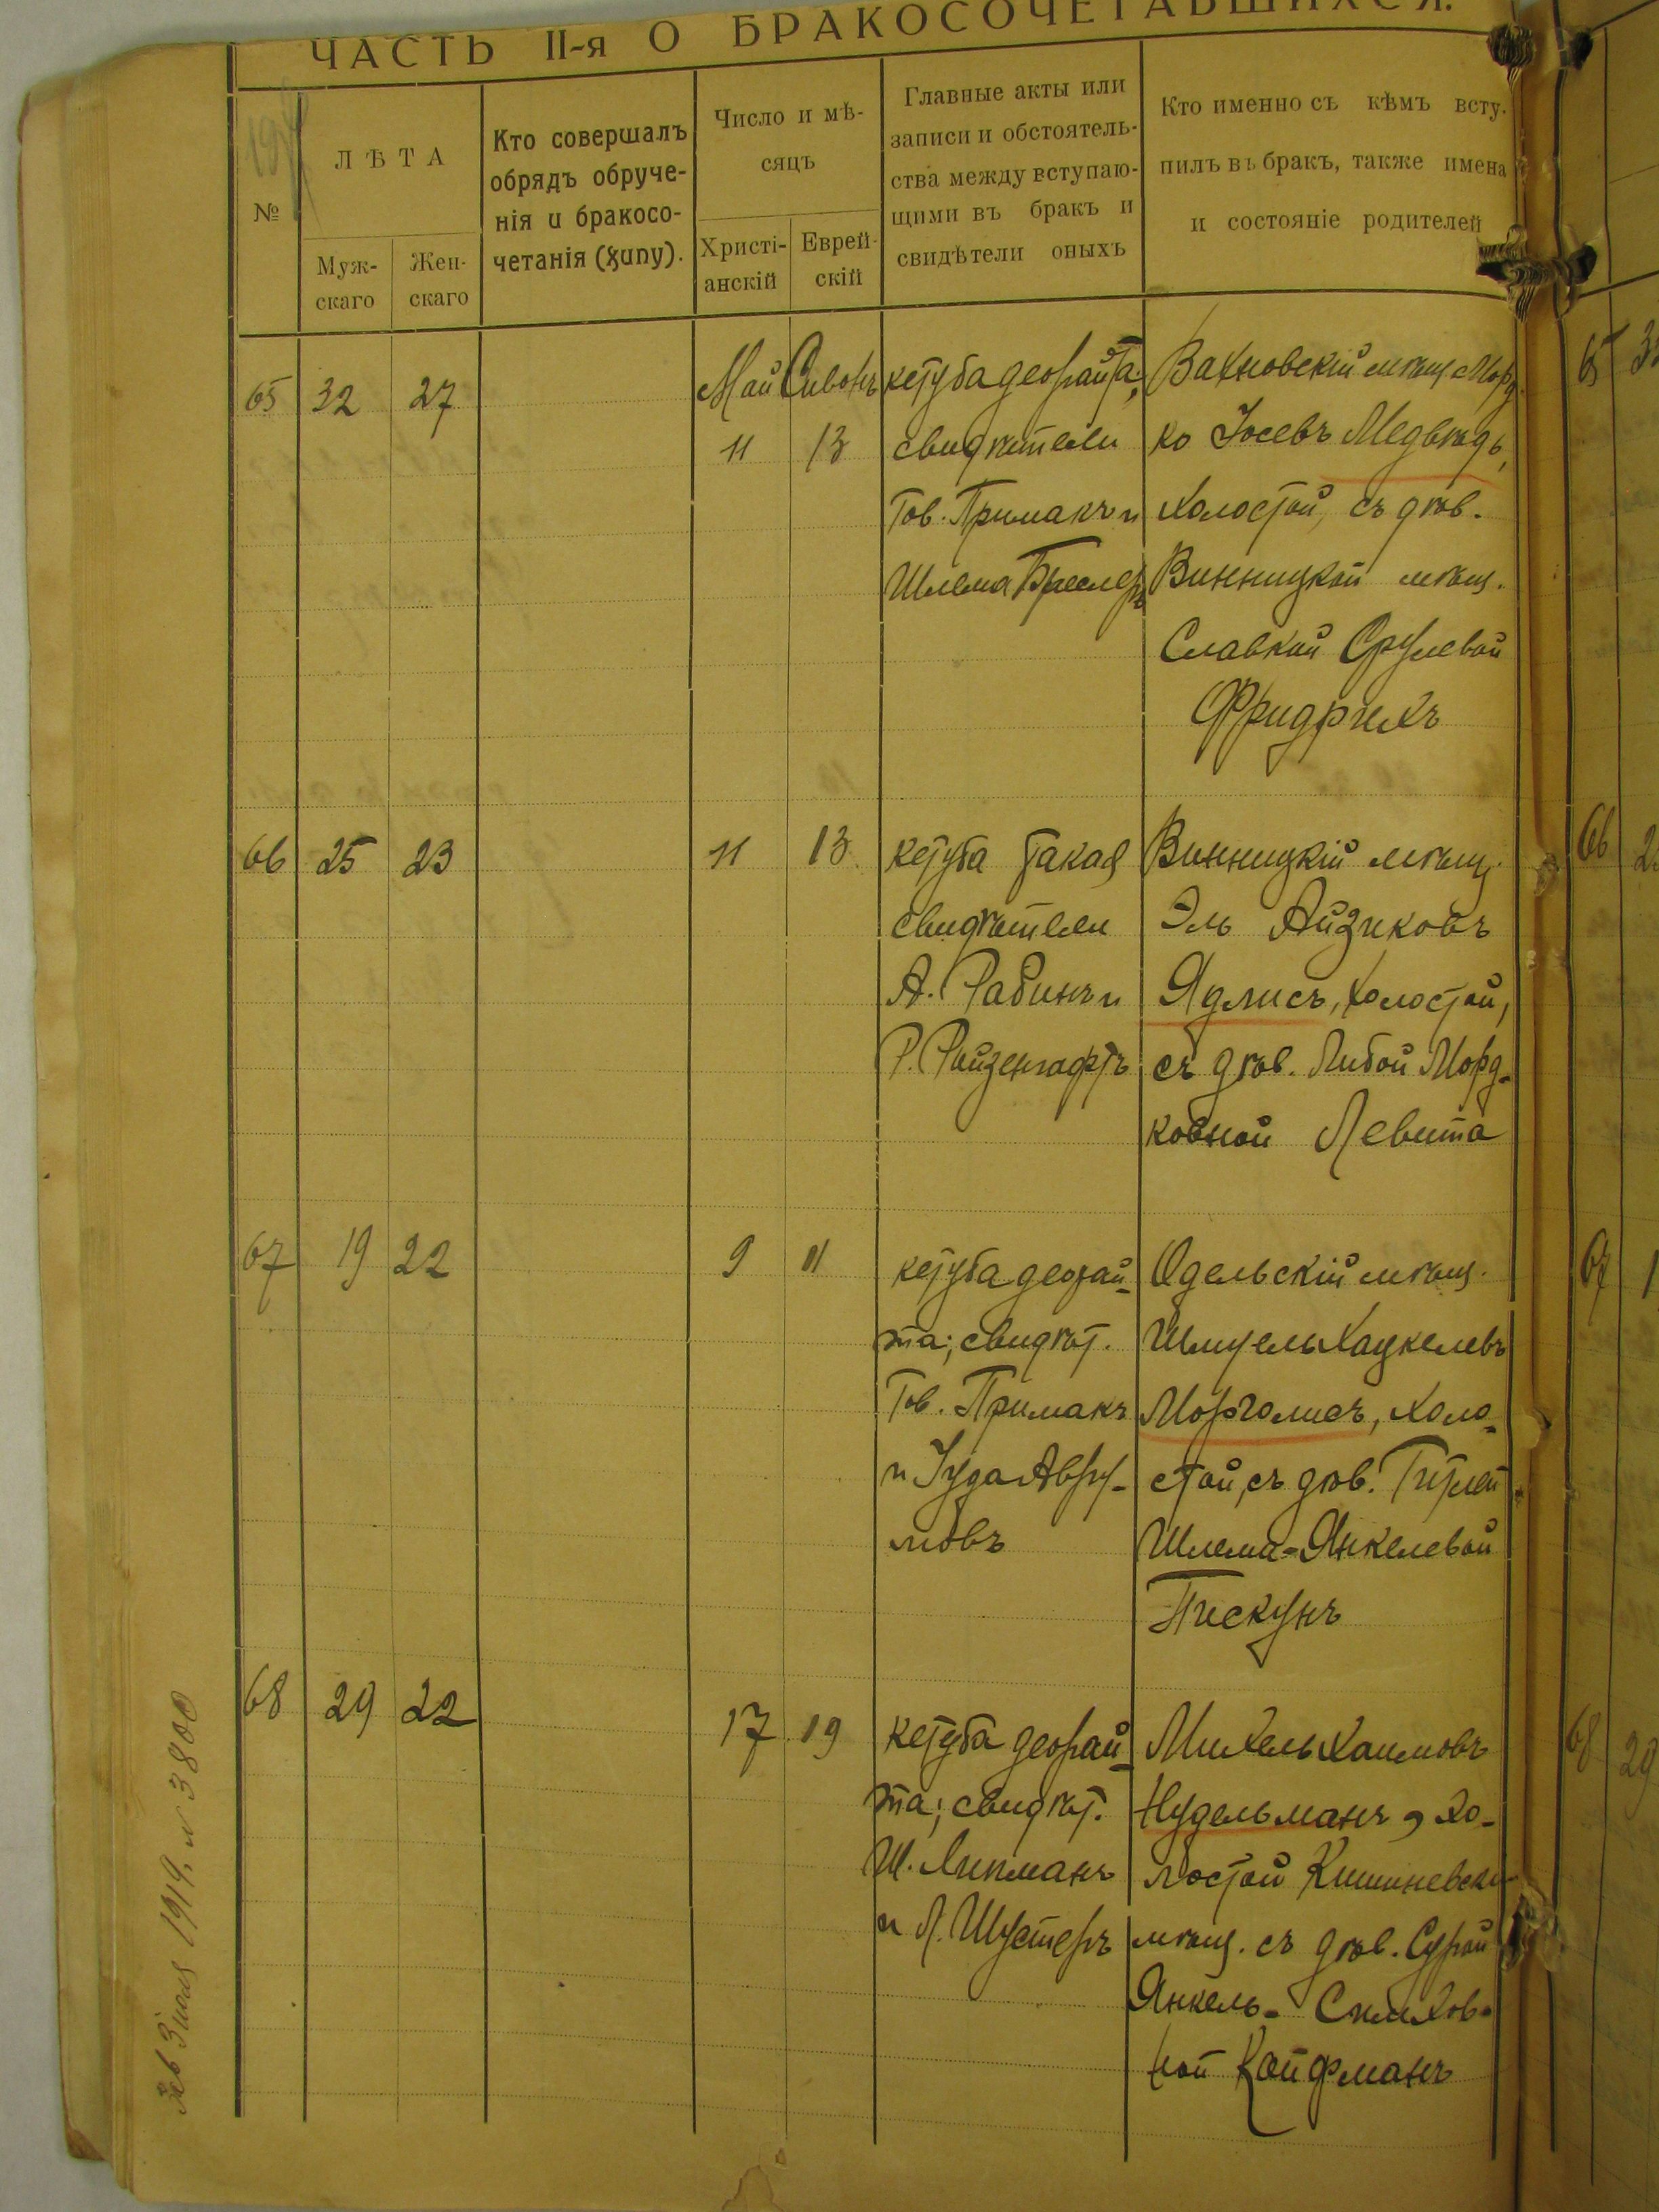 ЧАСТЬ II-я О БРАКОСОЧЕТАВШИХСЯ.
№
ЛѢТА
Муж-
скаго
Жен-
скаго
Кто совершалъ
обрядъ обруче-
нія и бракосо-
четанія (хипу).
Число и мѣ-
сяцъ
Христі-
анскій
Еврей-
скій
Главные акты или
записи и обстоятель-
ства между вступаю-
щими въ бракъ и
свидѣтели оныхъ
Кто именно съ кѣмъ всту-
пилъ въ бракъ, также имена
и состояніе родителей
65 32 27
Май Сивонъ
11 13
кетуба деорайта;
свидѣтели
Тов. Примакъ и
Шлема Бреслеръ
Вахновскій мѣщ. Морд-
ко Іосевъ Медвѣдь,
холостой, съ дѣв.
Винницкой мѣщ.
Славкой Срулевой
Фридрихъ
66 25 23
11 13
кетуба такая
свидѣтели
А. Рабинъ и
Р. Райзенгафтъ
Винницкій мѣщ.
Эль Айзиковъ
Ядлисъ, холостой,
съ дѣв. Либой Морд-
ковной Левита
67 19 22
9 11
кетуба деорай-
та; свидѣт.
Тов. Примакъ
и Іуда Авру-
мовъ
Одельскій мѣщ.
Шмуель Хацкелевъ
Морголисъ, холо-
стой, съ дѣв. Гитлей
Шлема-Янкелевой
Пискунъ
68 29 22
17 19
кетуба деорай-
та; свидѣт.
Ш. Липманъ
и Л. Шустеръ
Михель Хаимовъ
Нудельманъ, хо-
лостой Кишиневски
мѣщ. съ дѣв. Сурой
Янкель-Симхов-
ной Койфманъ
3 июля 1919. № 3800
65
66
67
68 29